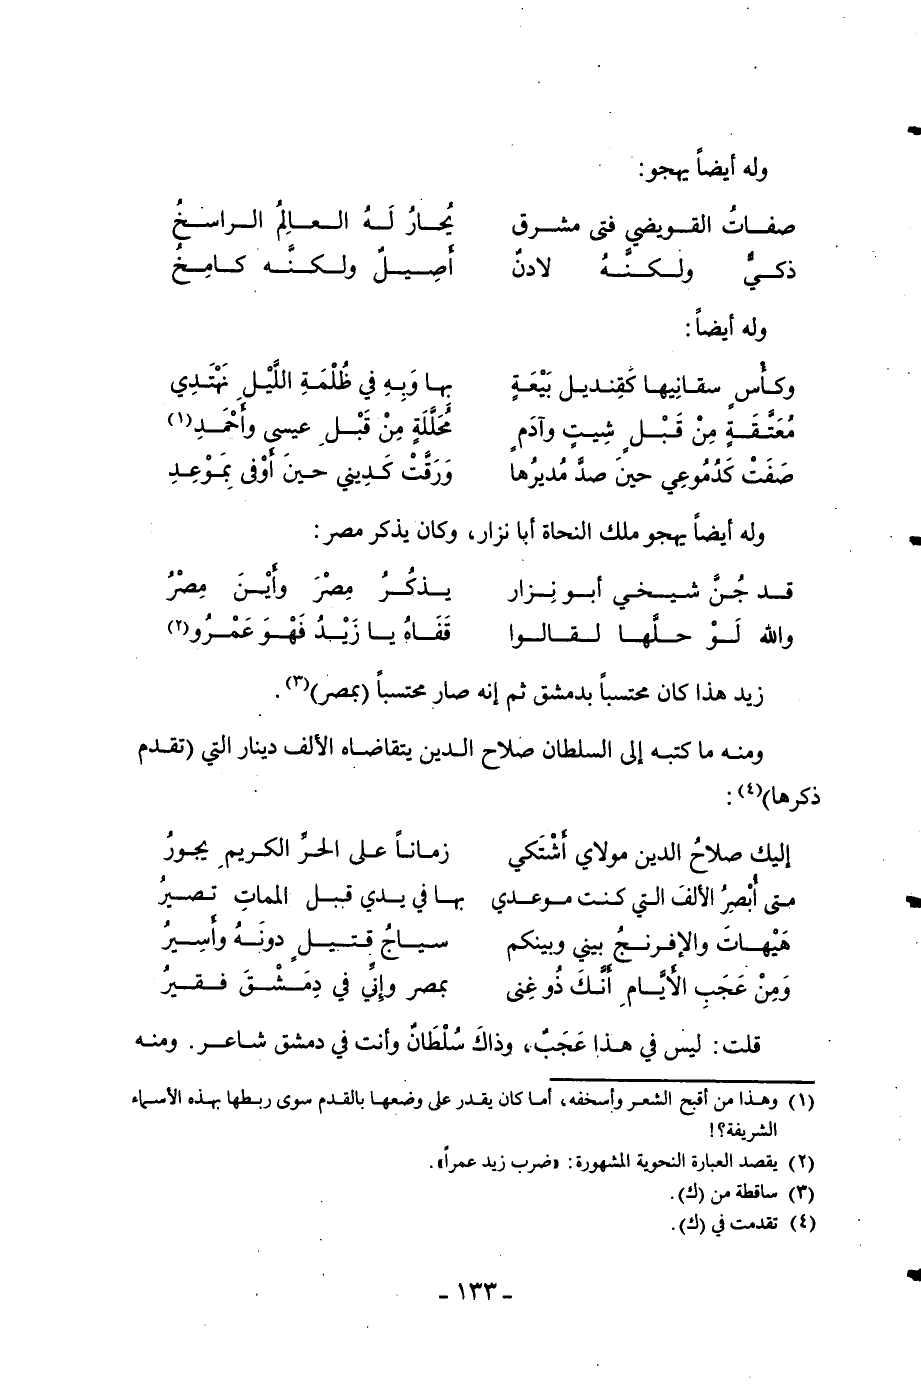 وله أيضاً يهجو:
صفاتُ القويضي فتى مشرق يُحارُ لَهُ العالِمُ الراسخُ
ذكيٌّ ولكنَّهُ لادنٌ أَصِيلٌ ولكنَّه كامِخُ
وله أيضاً:
وكأْسٍ سقانِيها كَقِنديل بَيْعَةٍ بها وَبِهِ في ظُلْمَةِ اللَّيْلِ نَهْتَدِي
مُعَتَّقَةٍ مِنْ قَبْلِ شِيثٍ وآدَمٍ مُحَلَّلَةٍ مِنْ قَبْلِ عيسى وأَحْمَدِ(١)
صَفَتْ كَدُمُوعِي حينَ صدَّ مُديرُها وَرَقَّتْ كَدِيني حينَ أَوْفى بمَوْعِدِ
وله أيضاً يهجو ملك النحاة أبا نزار، وكان يذكر مصر:
قد جُنَّ شيخي أبو نِزار يذكُرُ مِصْرَ وأَيْنَ مِصْرُ
والله لَوْ حلَّها لقالوا قَفَاهُ يا زَيْدُ فَهْوَ عَمْرُو(٢)
زيد هذا كان محتسباً بدمشق ثم إنه صار محتسباً (بمصر)(٣).
ومنه ما كتبه إلى السلطان صلاح الدين يتقاضاه الألف دينار التي (تقدم
ذكرها)(٤):
إليك صلاحُ الدين مولاي أَشْتَكي زماناً على الحرِّ الكريمِ يجورُ
متى أُبْصِرُ الألفَ التي كنت موعدي بها في يدي قبل المماتِ تصيرُ
هَيْهاتَ والإفرنجُ بيني وبينكم سياجُ قتيلٍ دونَهُ وأَسِيرُ
وَمِنْ عَجَبِ الأَيَّامِ أَنَّكَ ذُو غِنى بمصر وإنِّي في دِمَشْقَ فقيرُ
قلت: ليس في هذا عَجَبٌ، وذاكَ سُلْطَانٌ وأنت في دمشق شاعر. ومنه
(١) وهذا من أقبح الشعر وأسخفه، أما كان يقدر على وضعها بالقدم سوى ربطها بهذه الأسماء
الشريفة؟!
(٢) يقصد العبارة النحوية المشهورة: «ضرب زيد عمراً».
(٣) ساقطة من (ك).
(٤) تقدمت في (ك).
- ١٣٣ -